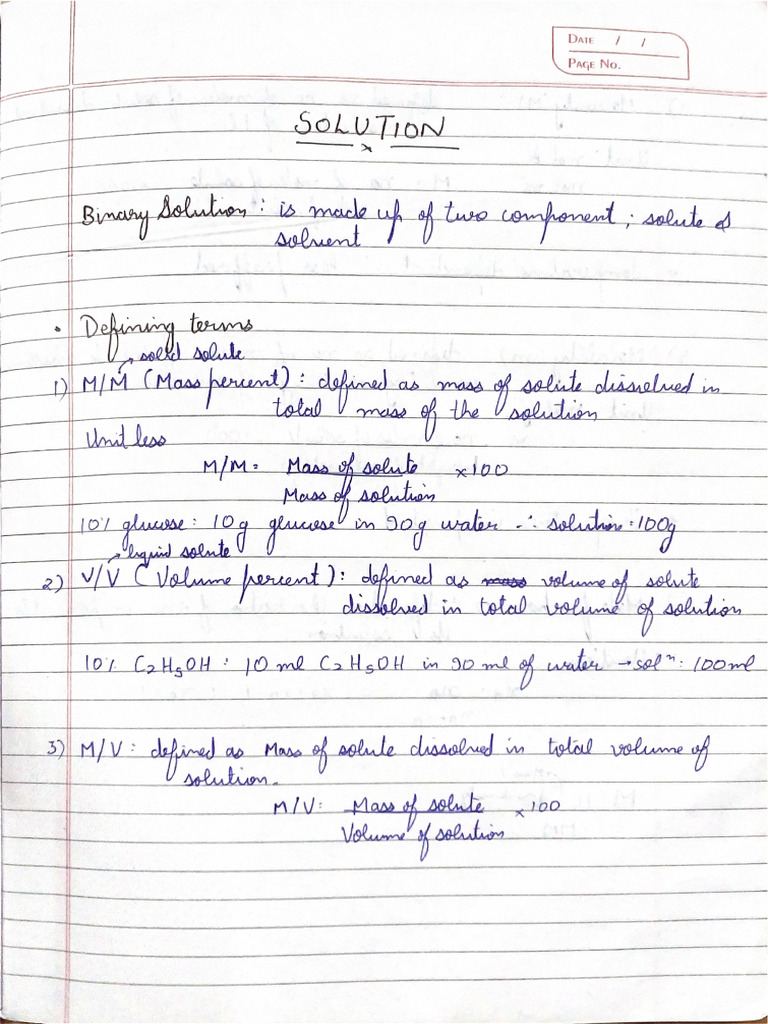 DATE / /
PAGE NO.
SOLUTION
Binary Solution : is made up of two component ; solute &
solvent
• Defining terms
→ solid solute
1) M/M (Mass percent) : defined as mass of solute dissolved in
total mass of the solution
Unit less
M/M = Mass of solute × 100
Mass of solution
10% glucose : 10g glucose in 90g water ∴ solution = 100g
→ liquid solute
2) V/V (Volume percent) : defined as mass volume of solute
dissolved in total volume of solution
10% C2H5OH : 10 ml C2H5OH in 90 ml of water → solⁿ : 100ml
3) M/V : defined as Mass of solute dissolved in total volume of
solution.
M/V : Mass of solute × 100
Volume of solution